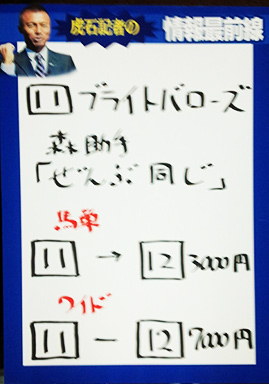 成石記者の 情報最前線
11 ブライトバローズ
森助手
「ぜんぶ同じ」
馬単
11 → 12 3000円
ワイド
11 ー 12 7000円